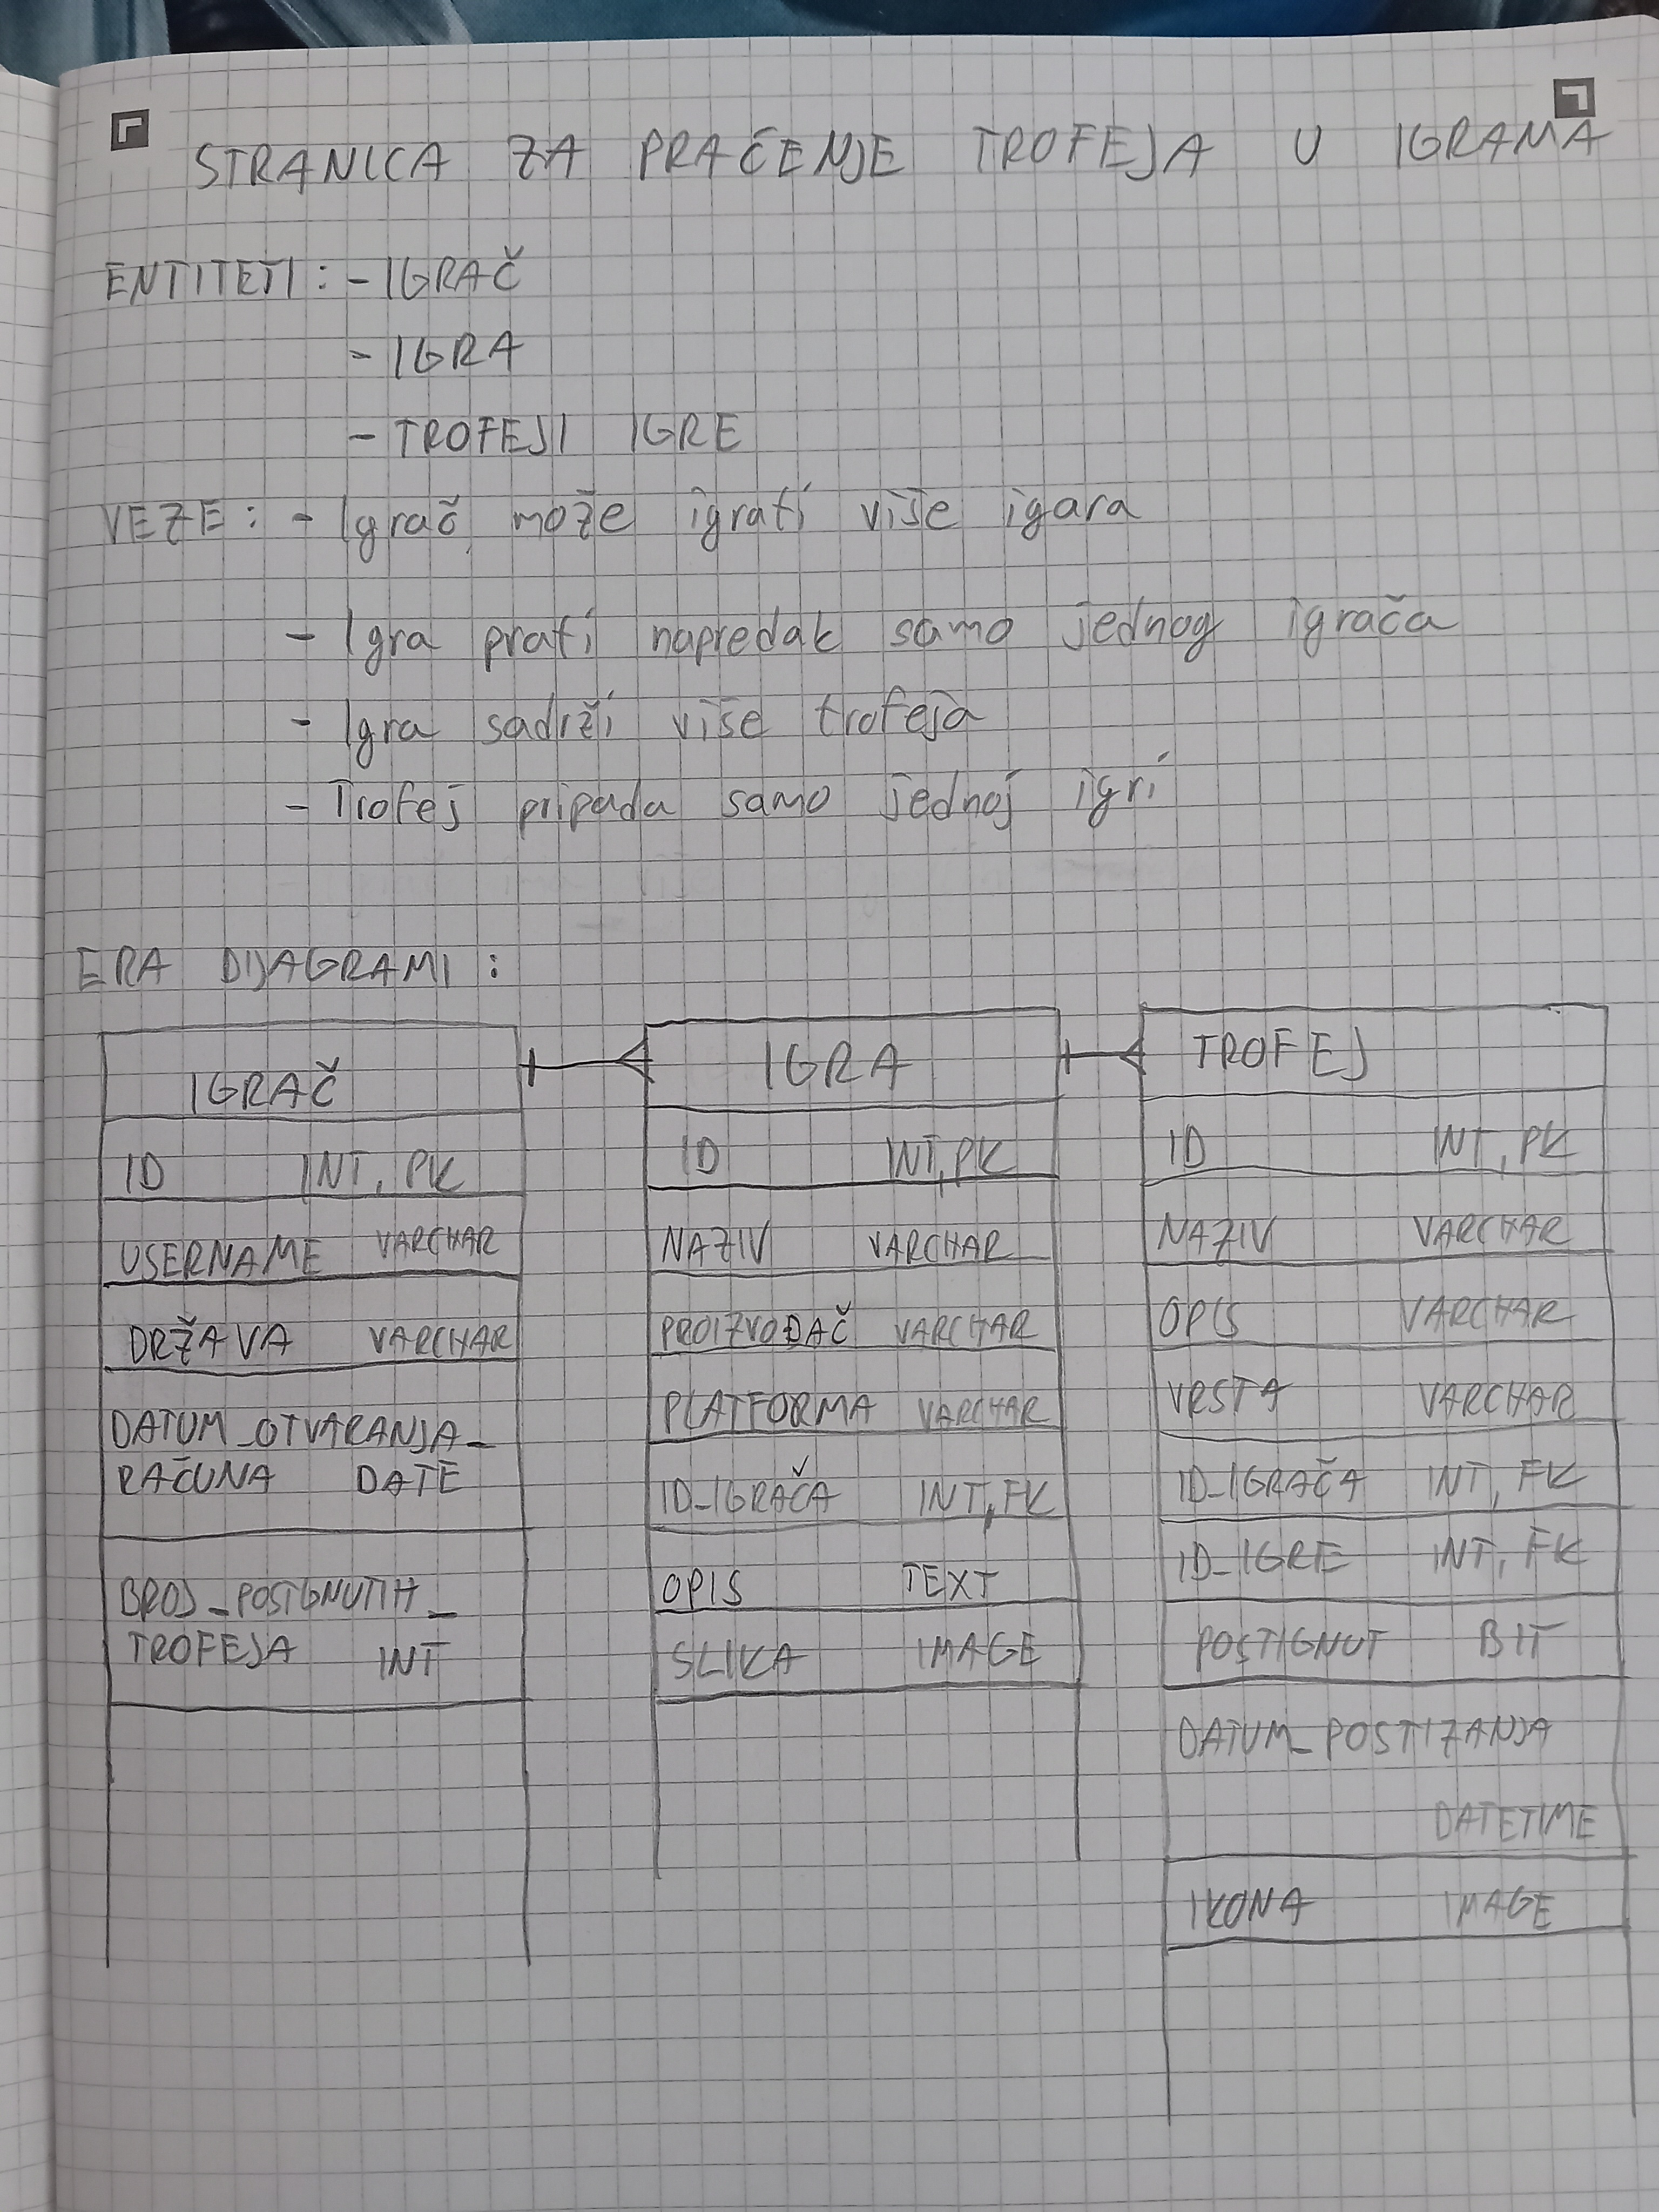 STRANICA ZA PRAČENJE TROFEJA U IGRAMA
ENTITETI: - IGRAČ
- IGRA
- TROFEJI IGRE
VEZE: - Igrač može igrati više igara
- Igra prati napredak samo jednog igrača
- Igra sadrži više trofeja
- Trofej pripada samo jednoj igri
ERA DIJAGRAMI:
IGRAČ
ID INT, PK
USERNAME VARCHAR
DRŽAVA VARCHAR
DATUM_OTVARANJA_
RAČUNA DATE
BROJ_POSTIGNUTIH_
TROFEJA INT
IGRA
ID INT, PK
NAZIV VARCHAR
PROIZVOĐAČ VARCHAR
PLATFORMA VARCHAR
ID_IGRAČA INT, FK
OPIS TEXT
SLIKA IMAGE
TROFEJ
ID INT, PK
NAZIV VARCHAR
OPIS VARCHAR
VRSTA VARCHAR
ID_IGRAČA INT, FK
ID_IGRE INT, FK
POSTIGNUT BIT
DATUM_POSTIZANJA
DATETIME
IKONA IMAGE